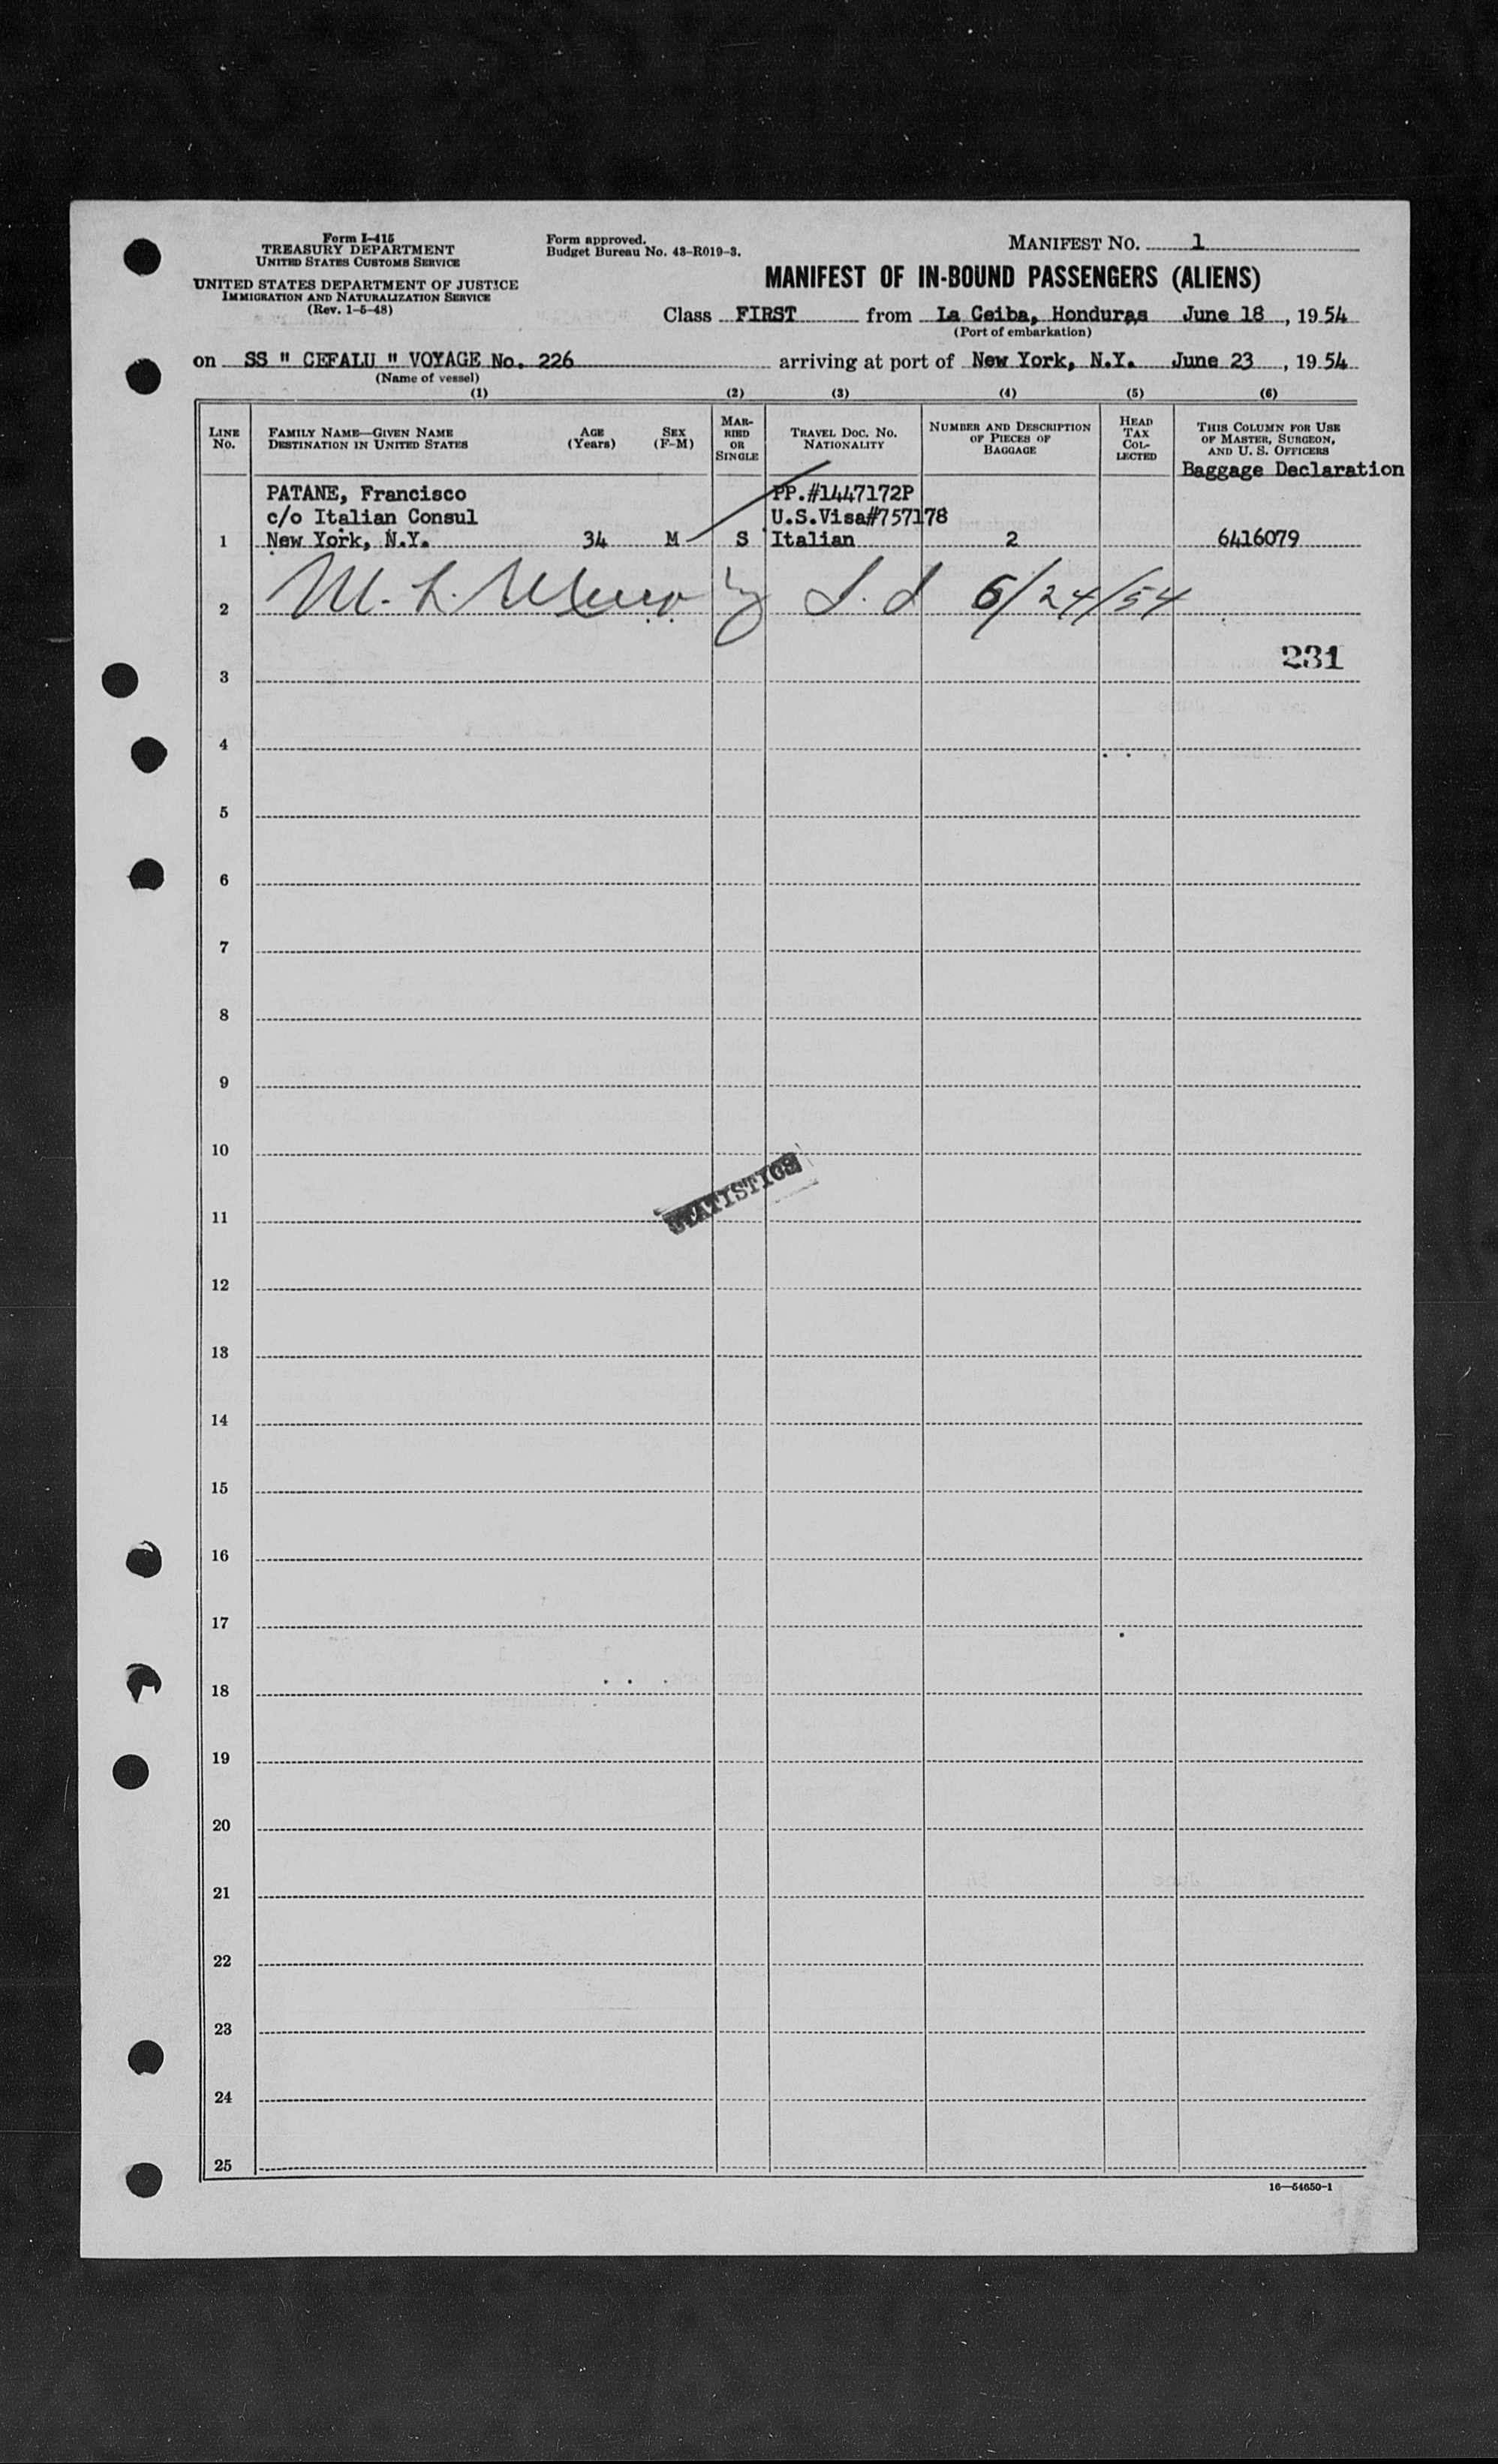 Form I-415
TREASURY DEPARTMENT
UNITED STATES CUSTOMS SERVICE
UNITED STATES DEPARTMENT OF JUSTICE
IMMIGRATION AND NATURALIZATION SERVICE
(Rev. 1-5-48)
Form approved.
Budget Bureau No. 43-R019-3.
MANIFEST NO. 1
MANIFEST OF IN-BOUND PASSENGERS (ALIENS)
Class FIRST from La Ceiba, Honduras June 18, 1954
(Port of embarkation)
on SS " CEFALU " VOYAGE No. 226 arriving at port of New York, N.Y. June 23, 1954
(Name of vessel)
(1) (2) (3) (4) (5) (6)
LINE No.
FAMILY NAME—GIVEN NAME
DESTINATION IN UNITED STATES
AGE (Years)
SEX (F-M)
MARRIED OR SINGLE
TRAVEL DOC. NO.
NATIONALITY
NUMBER AND DESCRIPTION OF PIECES OF BAGGAGE
HEAD TAX COLLECTED
THIS COLUMN FOR USE OF MASTER, SURGEON, AND U. S. OFFICERS
Baggage Declaration
PATANE, Francisco PP.#1447172P
c/o Italian Consul U.S.Visa#757178
1 New York, N.Y. 34 M S Italian 2 6416079
2 M. L. 6/24/54
231
3
4
5
6
7
8
9
10
STATISTICS
11
12
13
14
15
16
17
18
19
20
21
22
23
24
25
16—54650-1